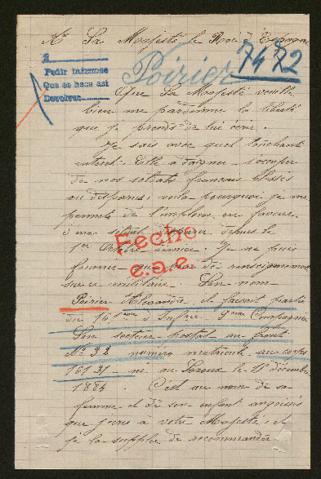 A Sa Majesté le Roi d'Espagne
7472
Poirier
Pedir informes
Que se haga
Devolver
Que Sa Majesté veuille
bien me pardonner la liberté
que je prends de lui écrire.
Je sais avec quel touchant
intérêt Elle daigne s'occuper
de nos soldats français blessés
ou disparus; voilà pourquoi je me
permets de l'implorer en faveur
depuis le
1er Octobre dernier. Je ne puis
fournir que peu de renseignements
sur ce militaire. Son nom
Fecho
Poirier Alexandre il faisait partie
du d'Infrie 9ème Compagnie
Son secteur postal au front
No 32 numéro matricule au corps
né au le 11 décembre
1884. C'est au nom de sa
femme et de son enfant angoissés
que j'écris à votre Majesté; et
je la supplie de recommander